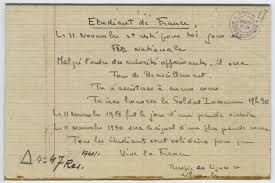 Etudiant de France,
Le 11 Novembre est resté pour toi jour de
Fête Nationale
Malgré l'ordre des autorités opprimantes, il sera
Jour de Recueillement.
Tu n'assisteras à aucun cours
Tu iras honorer le Soldat Inconnu 17h30
Le 11 Novembre 1918 fut le jour d'une grande victoire
Le 11 Novembre 1940 sera le signal d'une plus grande encore
Tous les étudiants sont solidaires pour que
Vive la France
4° 47
Res.